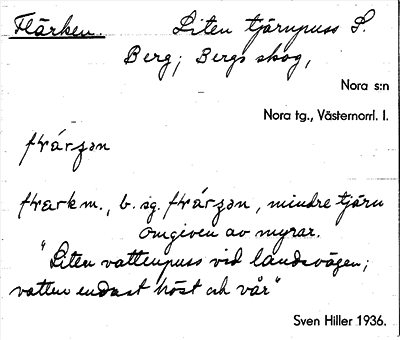 Flärken. Liten tjärnpuss S.
Berg; Bergs skog,
Nora s:n
Nora tg., Västernorrl. l.
flrárʒən
flrark m., b. sg. flrárʒən, mindre tjärn
omgiven av myrar.
"Liten vattenpuss vid landsvägen;
vatten endast höst och vår"
Sven Hiller 1936.